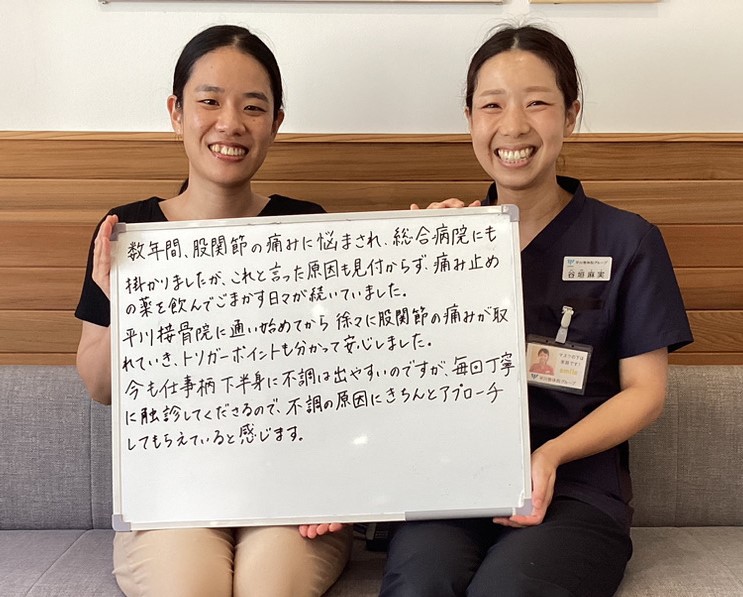 数年間、股関節の痛みに悩まされ、総合病院にも
掛かりましたが、これと言った原因も見付からず、痛み止め
の薬を飲んでごまかす日々が続いていました。
平川接骨院に通い始めてから徐々に股関節の痛みが取
れていき、トリガーポイントも分かって安心しました。
今も仕事柄下半身に不調は出やすいのですが、毎回丁寧
に触診してくださるので、不調の原因にきちんとアプローチ
してもらえていると感じます。
谷垣麻実